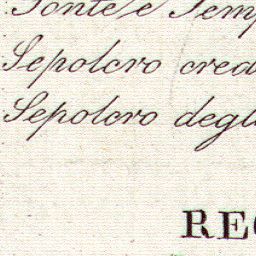 Fonte e Temp
Sepolcro cred
Sepolcro degl
REG